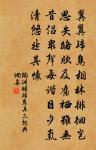 翼翼歸鳥相林徘徊豈
思天路欣及舊棲雖無
昔侶眾聲每諧日夕氣
清悠然其懷
陶淵明歸鳥其三